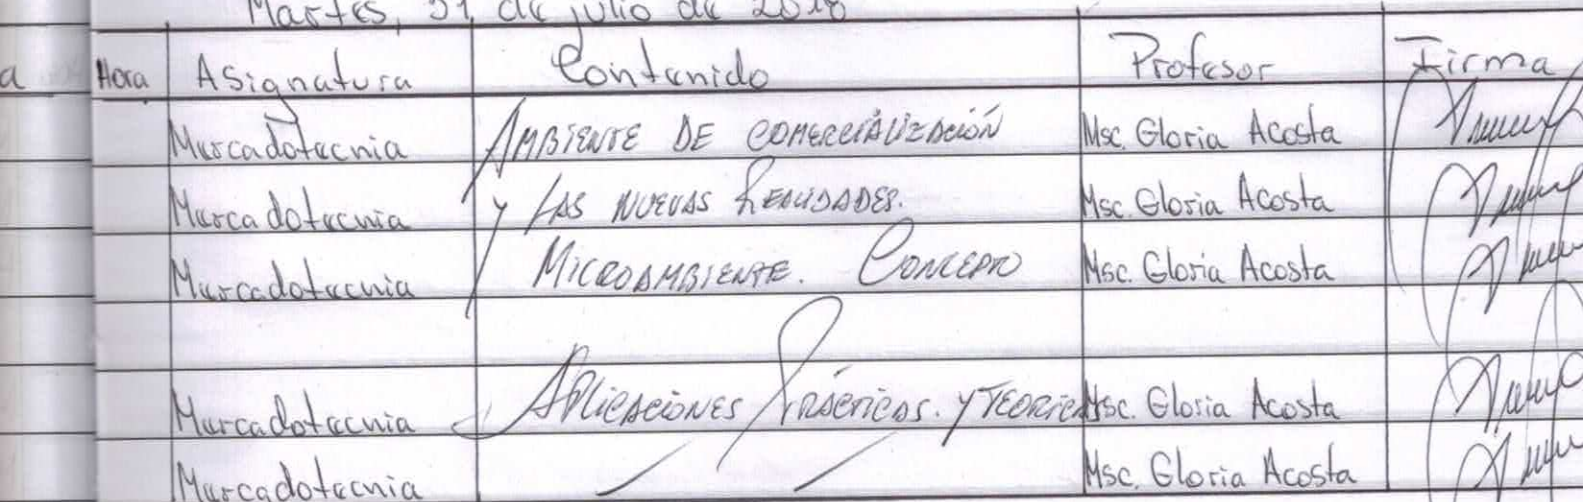 Martes, 31 de julio de 2018
a Hora Asignatura Contenido Profesor Firma
Mercadotecnia AMBIENTE DE COMERCIALIZACIÓN Msc. Gloria Acosta
Mercadotecnia y LAS NUEVAS REALIDADES. Msc. Gloria Acosta
Mercadotecnia MICROAMBIENTE. CONCEPTO Msc. Gloria Acosta
Mercadotecnia APLICACIONES PRÁCTICAS. Y TEORICAS Msc. Gloria Acosta
Mercadotecnia Msc. Gloria Acosta